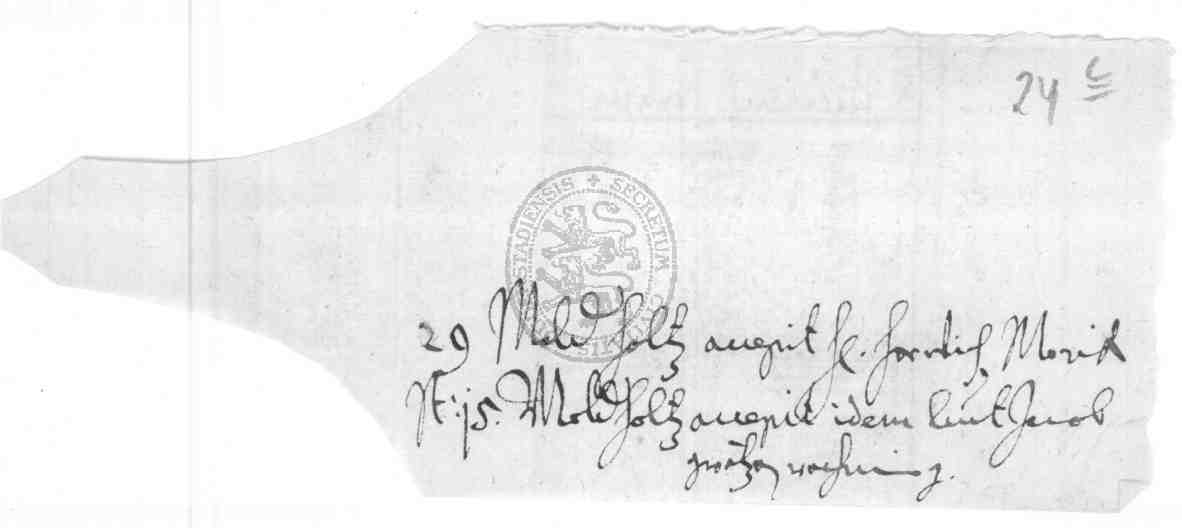 24 c
STADIENSIS + SECRETUM
29 Mold holtz accepit H. Henrich Morit
It: 15. Mold holtz accepit idem lut Jacob
rechnung.